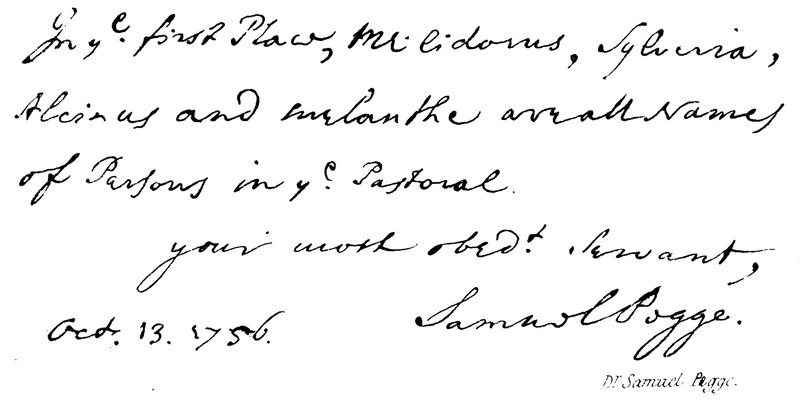 In yᵉ. first Place, Melidorus, Sylveria,
Alcinus and Melanthe are all Names
of Persons in yᵉ. Pastoral.
your most obedᵗ. Servant,
Oct. 13. 1756. Samuel Pegge.
Dʳ Samuel Pegge.